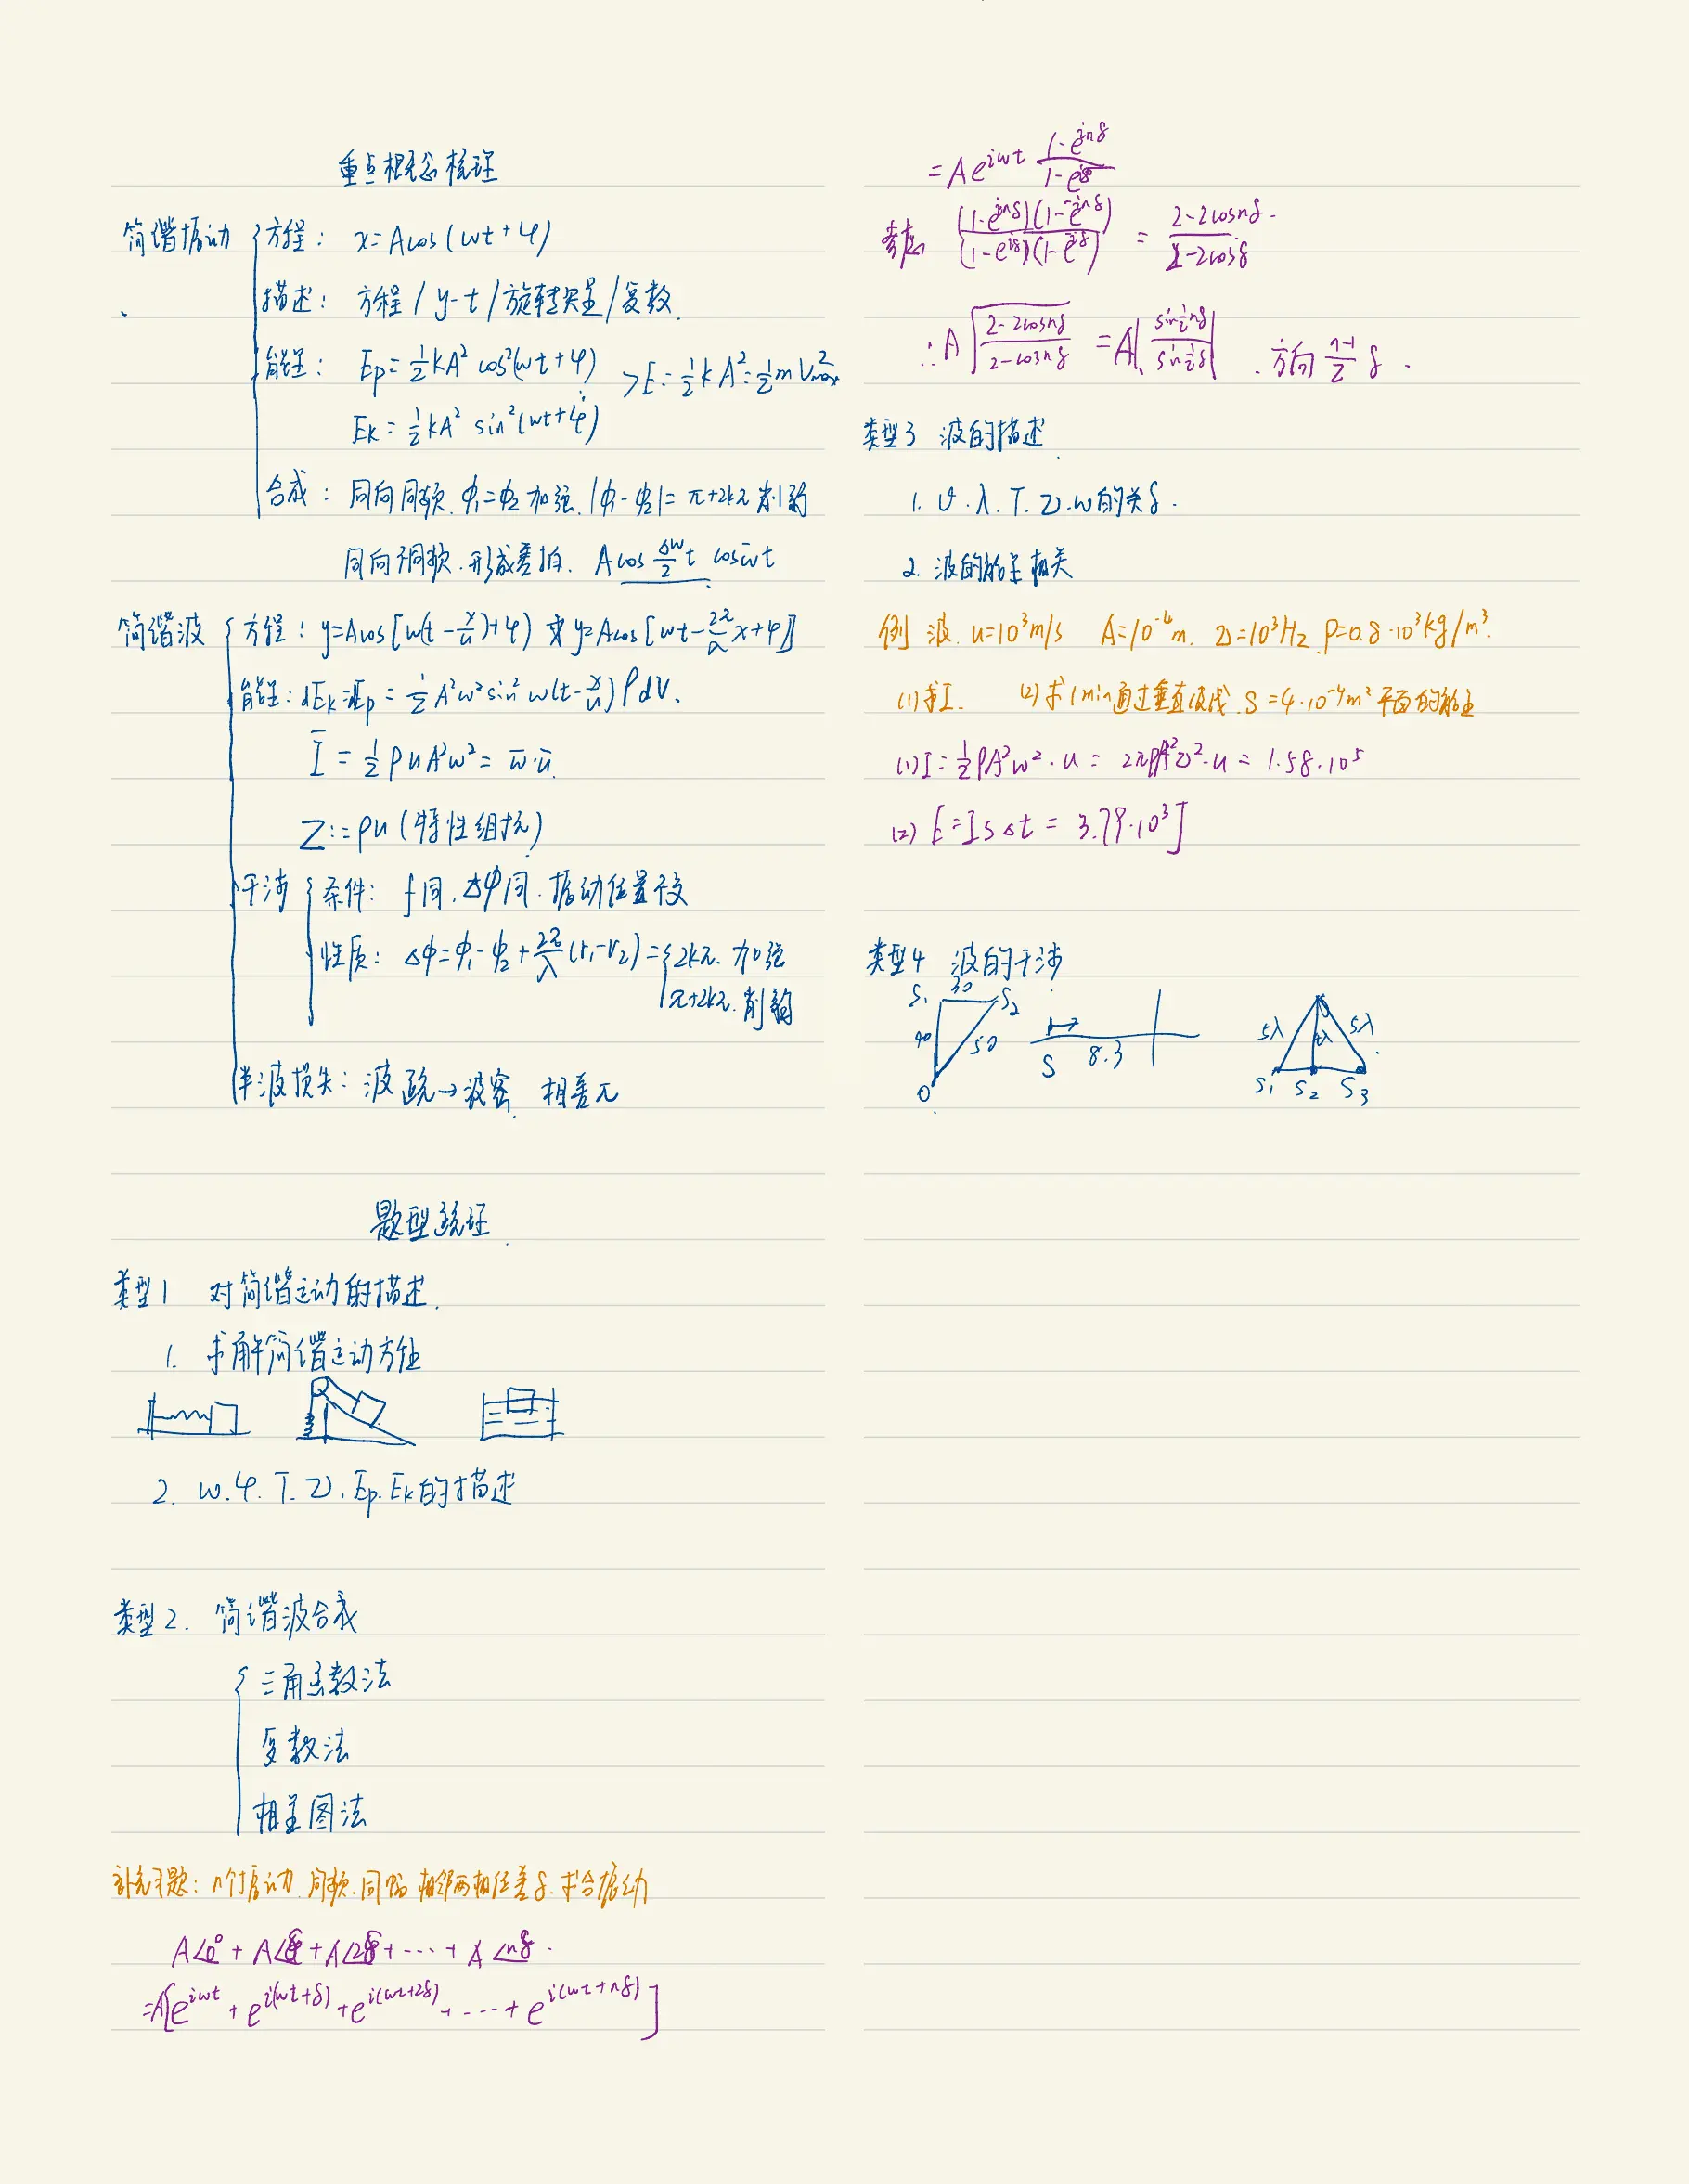 重点概念梳理
简谐振动 方程: x=Acos(ωt+φ)
描述: 方程/y-t/旋转矢量/复数.
能量: Ep=½kA²cos²(ωt+φ) >E=½kA²=½mVmax²
Ek=½kA² sin²(ωt+φ)
合成: 同向同频.φ₁=φ₂加强.|φ₁-φ₂|=π+2kπ削弱
同向不同频.形成差拍. Acos Δω/2 t cosω̄t
简谐波 方程: y=Acos[ω(t-x/u)+φ) 或y=Acos[ωt-2π/λ x+φ]
能量: dEk=dEp=½A²ω²sin²ω(t-x/u)ρdV.
Ī=½ρuA²ω²=w̄·ū.
Z:=ρu(特性组抗)
干涉 条件: f同.Δφ同.振动位置不变
性质: Δφ=φ₁-φ₂+2π/λ(r₁-r₂)={2kπ.加强
π+2kπ.削弱
半波损失: 波疏→波密 相差π
题型梳理.
类型1 对简谐运动的描述.
1. 求解简谐运动方程
2. ω.φ.T.ν.Ep.Ek的描述
类型2. 简谐波合成
三角函数法
复数法
相量图法
补充习题: n个振动.同频.同幅 相邻两相位差δ.求合振动
A∠0°+A∠δ+A∠2δ+···+A∠nδ.
=A[e^{iωt}+e^{i(ωt+δ)}+e^{i(ωt+2δ)}+···+e^{i(ωt+nδ)}]
=Ae^{iωt} (1-e^{inδ})/(1-e^{iδ})
考虑 (1-e^{inδ})(1-e^{-inδ})/(1-e^{iδ})(1-e^{iδ}) = (2-2cosnδ)/(2-2cosδ)
∴A√((2-2cosnδ)/(2-cosnδ)) =A|sin½nδ/sin½δ| .方向 (n-1)/2 δ.
类型3 波的描述
1. υ.λ.T.ν.ω的关系.
2. 波的能量相关
例 波.u=10³m/s A=10⁻⁴m. ν=10³Hz ρ=0.8·10³kg/m³.
(1)求I. (2)求1min通过垂直波线.S=4·10⁻⁴m²平面的能量
(1)I=½ρA²ω²·u=2πρA²ν²·u=1.58·10⁵
(2) E=ISΔt=3.79·10³J
类型4 波的干涉
S₁ 30 S₂
40 50
O
S 8.3
5λ 4λ 5λ
S₁ S₂ S₃